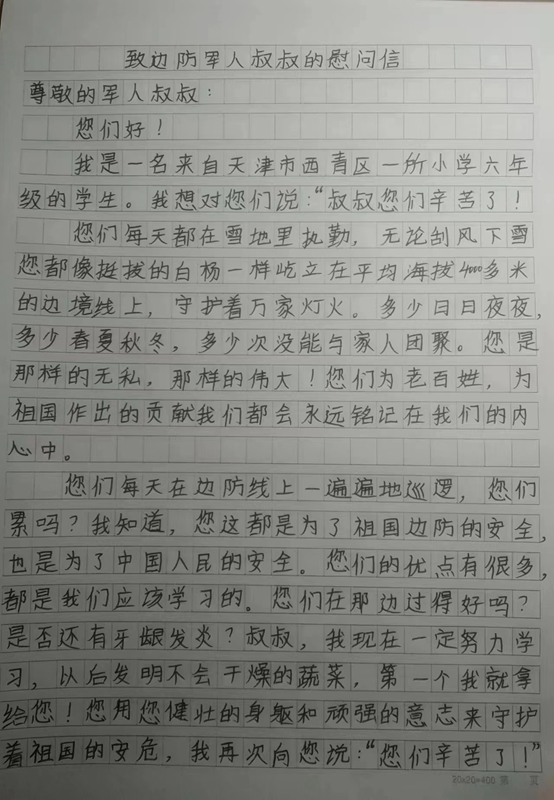 致边防军人叔叔的慰问信
尊敬的军人叔叔：
您们好！
我是一名来自天津市西青区一所小学六年
级的学生。我想对您们说：“叔叔您们辛苦了！
您们每天都在雪地里执勤，无论刮风下雪
您都像挺拔的白杨一样屹立在平均海拔4000多米
的边境线上，守护着万家灯火。多少日日夜夜，
多少春夏秋冬，多少次没能与家人团聚。您是
那样的无私，那样的伟大！您们为老百姓，为
祖国作出的贡献我们都会永远铭记在我们的内
心中。
您们每天在边防线上一遍遍地巡逻，您们
累吗？我知道，您这都是为了祖国边防的安全，
也是为了中国人民的安全。您们的优点有很多，
都是我们应该学习的。您们在那边过得好吗？
是否还有牙龈发炎？叔叔，我现在一定努力学
习，以后发明不会干燥的蔬菜，第一个我就拿
给您！您用您健壮的身躯和顽强的意志来守护
着祖国的安危，我再次向您说：“您们辛苦了！”
20×20=400 第 页